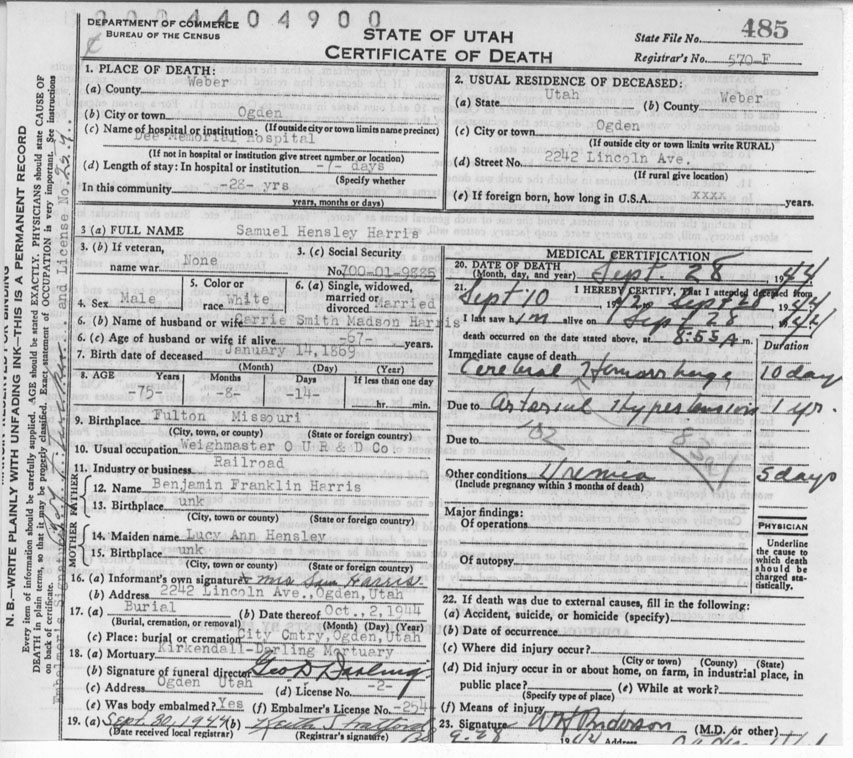 2004404900
DEPARTMENT OF COMMERCE
BUREAU OF THE CENSUS
STATE OF UTAH
CERTIFICATE OF DEATH
State File No. 485
Registrar's No. 570-F
N. B.—WRITE PLAINLY WITH UNFADING INK—THIS IS A PERMANENT RECORD
Every item of information should be carefully supplied. AGE should be stated EXACTLY. PHYSICIANS should state CAUSE OF
DEATH in plain terms, so that it may be properly classified. Exact statement of OCCUPATION is very important. See instructions
on back of certificate.
Embalmer's Signature and License No. 254
1. PLACE OF DEATH:
(a) County Weber
(b) City or town Ogden
(c) Name of hospital or institution: (If outside city or town limits name precinct)
Dee Memorial Hospital
(If not in hospital or institution give street number or location)
(d) Length of stay: In hospital or institution -7- days
(Specify whether
In this community -28- yrs
years, months or days)
2. USUAL RESIDENCE OF DECEASED:
(a) State Utah (b) County Weber
(c) City or town Ogden
(If outside city or town limits write RURAL)
(d) Street No. 2242 Lincoln Ave.
(If rural give location)
(e) If foreign born, how long in U.S.A. xxxx years.
3 (a) FULL NAME Samuel Hensley Harris
3. (b) If veteran, name war None
3. (c) Social Security No. 700-01-9885
4. Sex Male
5. Color or race White
6. (a) Single, widowed, married or divorced Married
6. (b) Name of husband or wife Carrie Smith Madson Harris
6. (c) Age of husband or wife if alive -67- years.
7. Birth date of deceased January 14, 1869
(Month) (Day) (Year)
8. AGE Years Months Days If less than one day
-75- -8- -14- hr. min.
9. Birthplace Fulton Missouri
(City, town, or county) (State or foreign country)
10. Usual occupation Weighmaster O U R & D Co.
11. Industry or business Railroad
FATHER
12. Name Benjamin Franklin Harris
13. Birthplace unk
(City, town, or county) (State or foreign country)
MOTHER
14. Maiden name Lucy Ann Hensley
15. Birthplace unk
(City, town, or county) (State or foreign country)
16. (a) Informant's own signature Mrs Sam Harris.
(b) Address 2242 Lincoln Ave., Ogden, Utah
17. (a) Burial (b) Date thereof Oct., 2, 1944
(Burial, cremation, or removal) (Month) (Day) (Year)
(c) Place: burial or cremation City Cmtry, Ogden, Utah
18. (a) Mortuary Kirkendall-Darling Mortuary
(b) Signature of funeral director Geo D Darling
(c) Address Ogden Utah (d) License No. -2-
(e) Was body embalmed? Yes (f) Embalmer's License No. -254
19. (a) Sept. 30, 1944 (b) Keith Stratford
(Date received local registrar) (Registrar's signature)
MEDICAL CERTIFICATION
20. DATE OF DEATH
(Month, day, and year) Sept. 28, 1944
21. I HEREBY CERTIFY, That I attended deceased from
Sept 10, 1942 to Sept 28, 1944
I last saw him alive on Sept 28 1944
death occurred on the date stated above, at 8:55 A m.
Duration
Immediate cause of death
Cerebral Hemorrhage 10 days
Due to Arterial Hypertension 1 yr.
Due to
102
83a
Other conditions Uremia 5 days
(Include pregnancy within 3 months of death)
Major findings:
Of operations
Of autopsy
PHYSICIAN
Underline
the cause to
which death
should be
charged sta-
tistically.
22. If death was due to external causes, fill in the following:
(a) Accident, suicide, or homicide (specify)
(b) Date of occurrence
(c) Where did injury occur?
(City or town) (County) (State)
(d) Did injury occur in or about home, on farm, in industrial place, in
public place? (e) While at work?
(Specify type of place)
(f) Means of injury
23. Signature (M.D. or other)
9-28 1944 Address